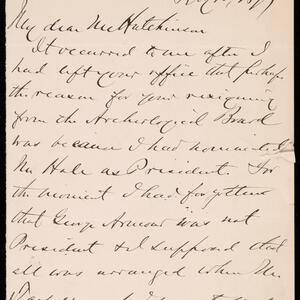 My dear Mr Hutchinson
It occurred to me after I
had left your office that perhaps
the reason for your resigning
from the Archeological Board
was because I had nominated
Mr Hale as President. For
the moment I had forgotten
that George Armour was not
President & I supposed that
all was arranged when Mr